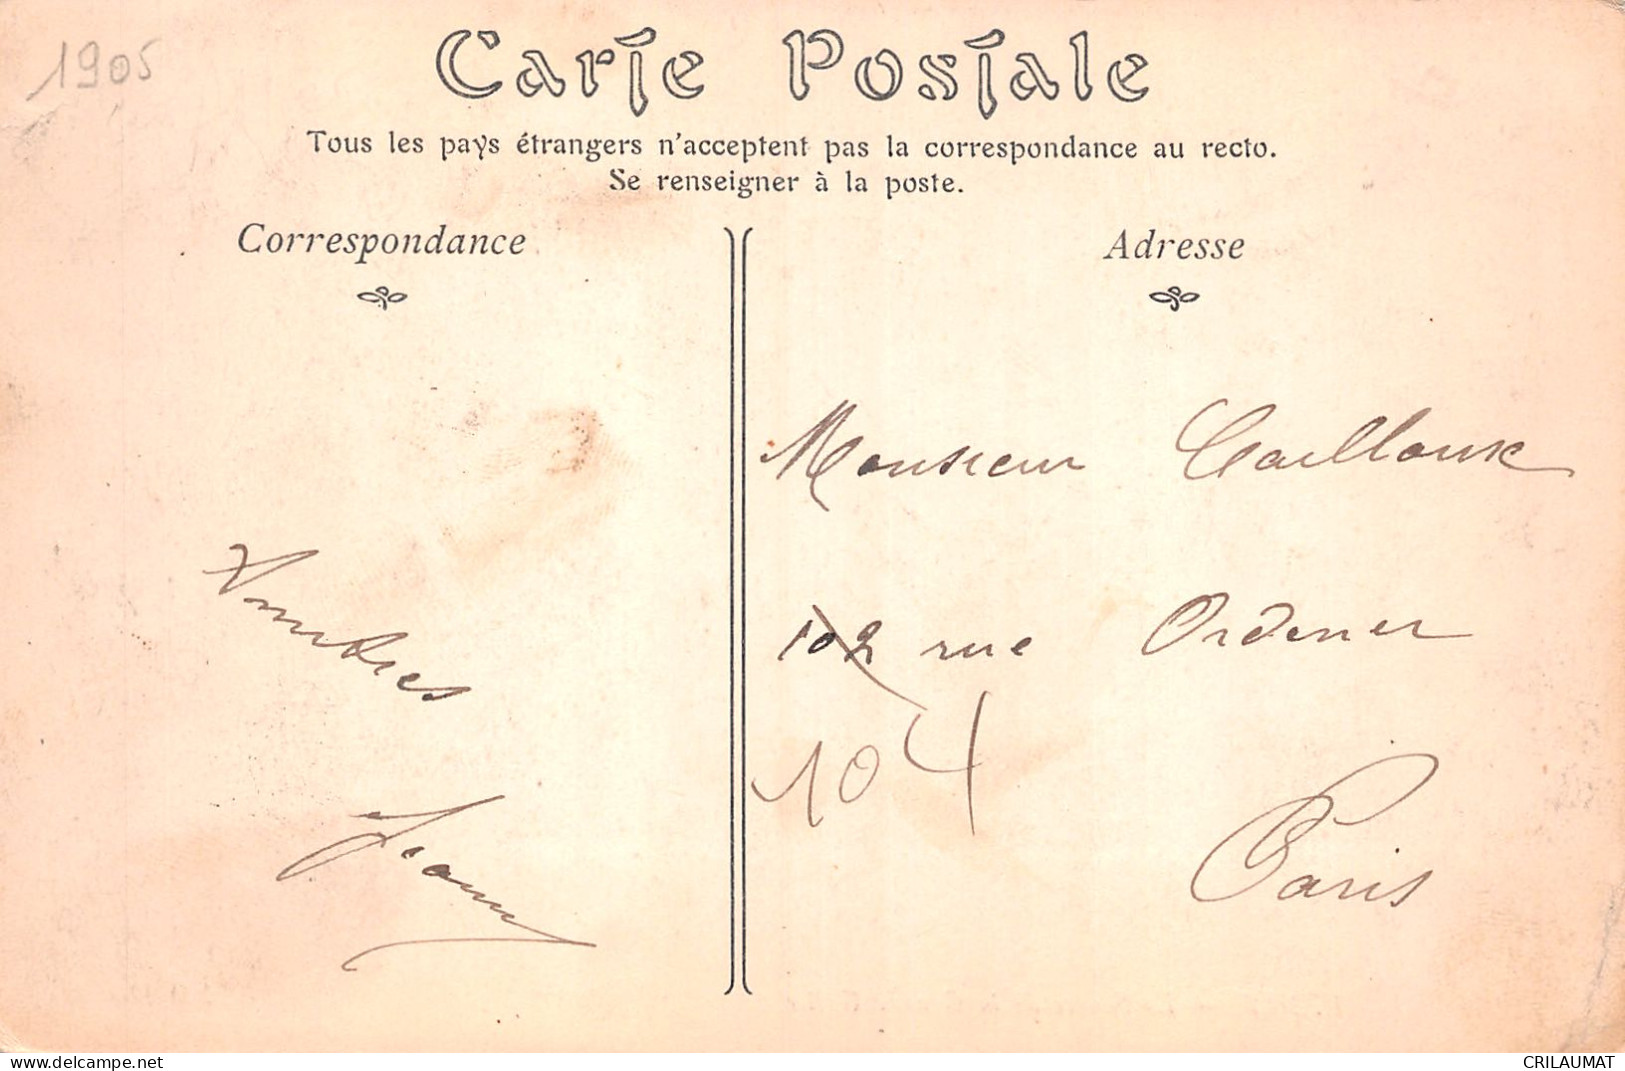 1905
Carte Postale
Tous les pays étrangers n'acceptent pas la correspondance au recto.
Se renseigner à la poste.
Correspondance
Adresse
Monsieur Cailloux
102 rue Ordener
104
Paris
Amitiés
Jeanne
https://www.delcampe.net
CRILAUMAT